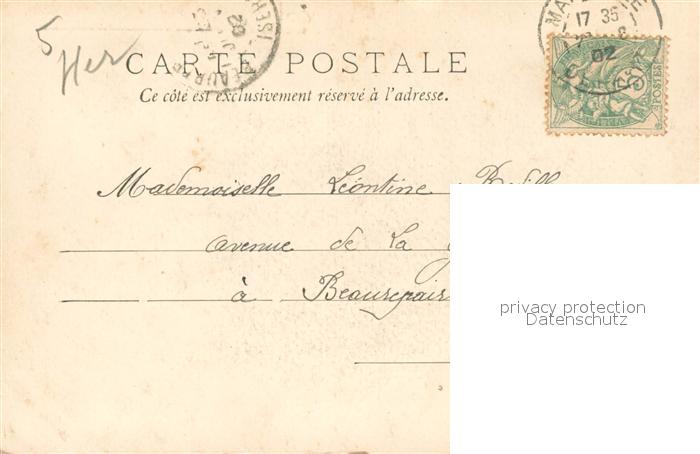 5
Her
CARTE POSTALE
Ce côté est exclusivement réservé à l'adresse.
17 35
02
POSTES
Mademoiselle Léontine
avenue de La
à Beaurepair
privacy protection
Datenschutz